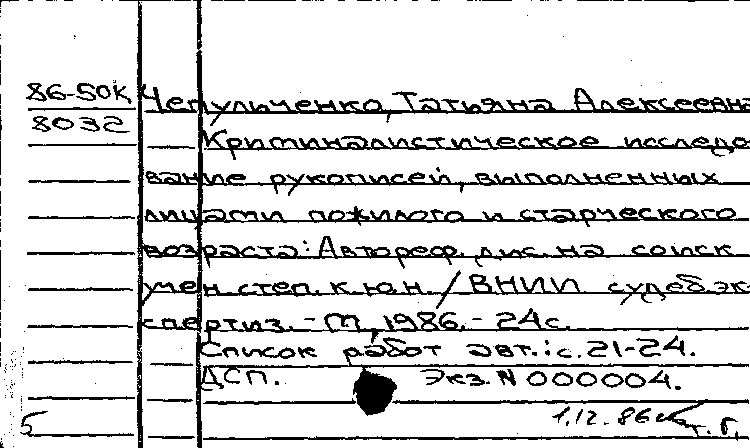 86-50К Чепульченко, Татьяна Алексеевна
8032
Криминалистическое исследо-
вание рукописей, выполненных
лицами пожилого и старческого
возраста: Автореф. дис. на соиск.
учен. степ. к.ю.н. / ВНИИ судеб. эк-
спертиз. - М., 1986. - 24 с.
Список работ авт.: с. 21-24.
ДСП. Экз. N 000004.
5 1.12.86